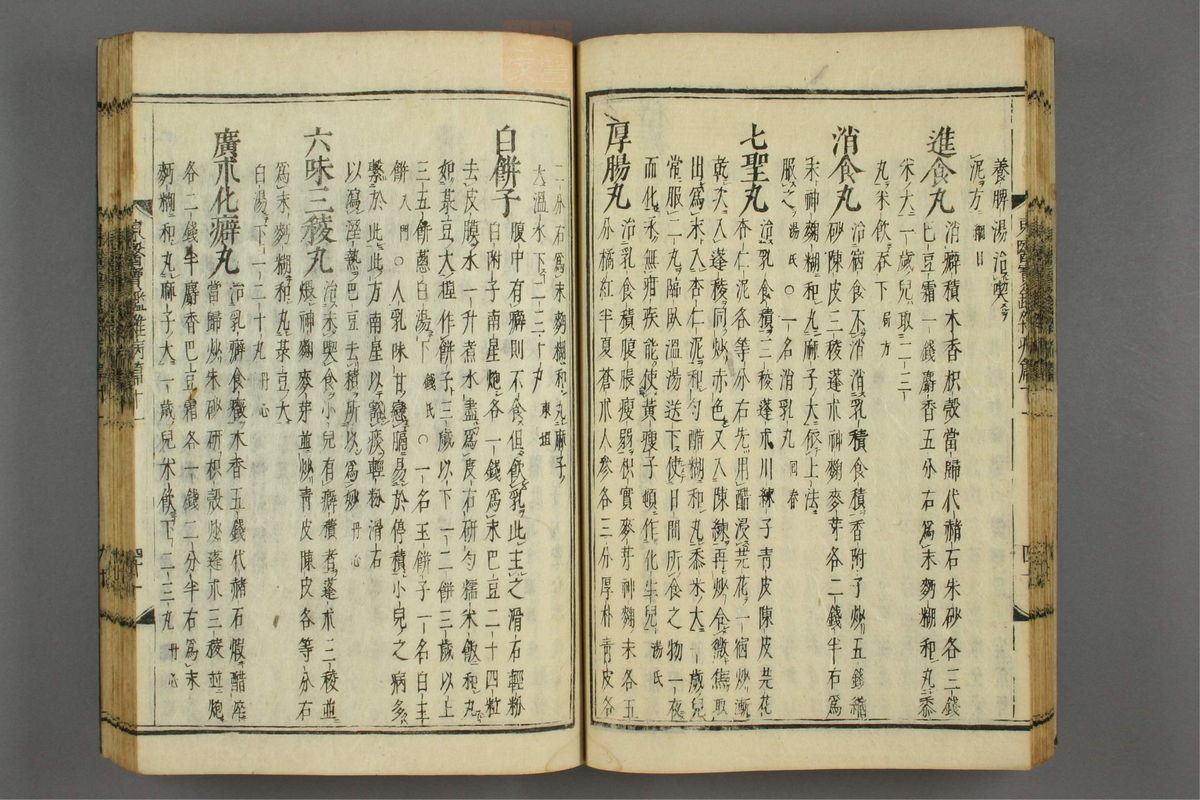 養脾湯治喫
泥方綱目
進食丸 消癖積木香枳殼當歸代赭石朱砂各三錢
巴豆霜一錢麝香五分右爲末麪糊和丸黍
米大一歲兒取二三
丸米飮呑下局方
消食丸 治宿食不消消乳積食積香附子炒五錢縮
砂陳皮三稜蓬朮神麴麥芽各二錢半右爲
末神麴糊和丸麻子大依上法
服之湯氏〇一名消乳丸回春
七聖丸 治乳食積三稜蓬朮川練子靑皮陳皮芫花
杏仁泥各等分右先用醋浸芫花一宿炒漸
乾次入蓬稜同炒赤色又入陳練再炒令微焦取
出爲末入杏仁泥和勻醋糊和丸黍米大一歲兒
常服二丸臨臥溫湯送下使日間所食之物一夜
而化永無疳疾能使黃瘦子頓作化生兒湯氏
厚腸丸 治乳食積腹脹瘦弱枳實麥芽神麴末各五
分橘紅半夏蒼朮人參各三分厚朴靑皮各
二分右爲末麪糊和丸麻子
大溫水下二三十丸東垣
白餅子 腹中有癖則不食但飮乳此主之滑石輕粉
白附子南星炮各一錢爲末巴豆二十四粒
去皮膜水一升煮水盡爲度右硏勻糯米飯和丸
如菉豆大捏作餅子三歲以下一二餅三歲以上
三五餅葱白湯下錢氏〇一名玉餅子一名白玉
餅入門〇人乳味甘戀膈易於停積小兒之病多
繫於此此方南星以豁痰輕粉滑石
以瀉溼熱巴豆去積所以爲妙丹心
六味三稜丸 治喫食小兒有癖積者蓬朮三稜並
煨神麴麥芽並炒靑皮陳皮各等分右
爲末麪糊和丸菉豆大
白湯下一二十丸丹心
廣朮化癖丸 治乳癖食癥木香五錢代赭石煆醋淬
當歸炒朱砂硏枳殼炒蓬朮三稜並炮
各二錢半麝香巴豆霜各一錢二分半右爲末
麪糊和丸麻子大一歲兒米飮下二三丸丹心
東醫寶鑑雜病篇十一
東醫寶鑑雜病篇十一